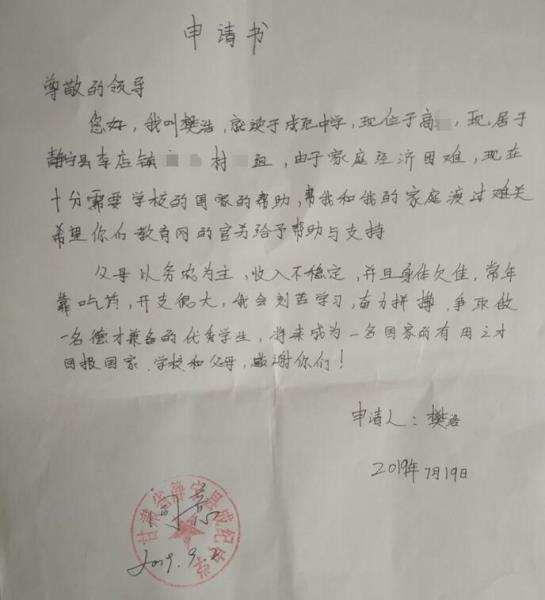 申请书
尊敬的领导
您好，我叫樊浩，就读于成纪中学，现位于高，现居于
静宁县李店镇 村 组，由于家庭经济困难，现在
十分需要学校的国家的帮助，帮我和我的家庭渡过难关
希望你们教育网的官员给予帮助与支持
父母以务农为主，收入不稳定，并且身体欠佳，常年
靠吃药，开支很大，我会刻苦学习，奋力拼搏，争取做
一名德才兼备的优秀学生，将来成为一名国家的有用之才
回报国家、学校和父母，感谢你们！
申请人：樊浩
2019年7月19日
甘肃省静宁县成纪中学
同意
2019.9.